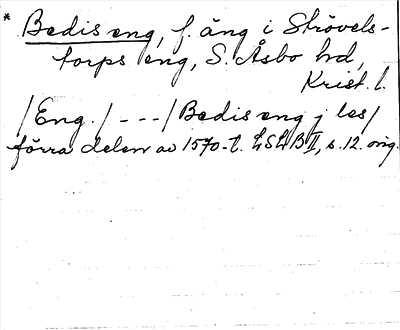 * Bedis eng, f. äng i Strövels-
torps eng, S. Åsbo hd,
Krist. l.
/Eng./ --- / Bedis eng j les/
förra delen av 1570-t. LSLB II, s. 12. orig.